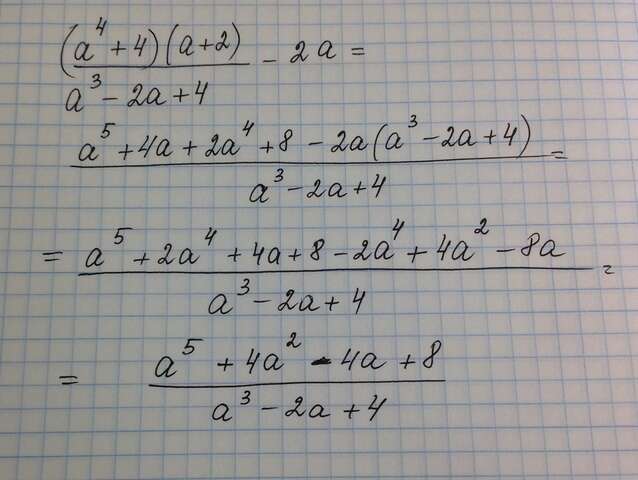 (a⁴ + 4)(a + 2)
――――――― − 2a =
a³ − 2a + 4
a⁵ + 4a + 2a⁴ + 8 − 2a(a³ − 2a + 4)
――――――― =
a³ − 2a + 4
= a⁵ + 2a⁴ + 4a + 8 − 2a⁴ + 4a² − 8a
――――――― =
a³ − 2a + 4
= a⁵ + 4a² − 4a + 8
―――――――
a³ − 2a + 4